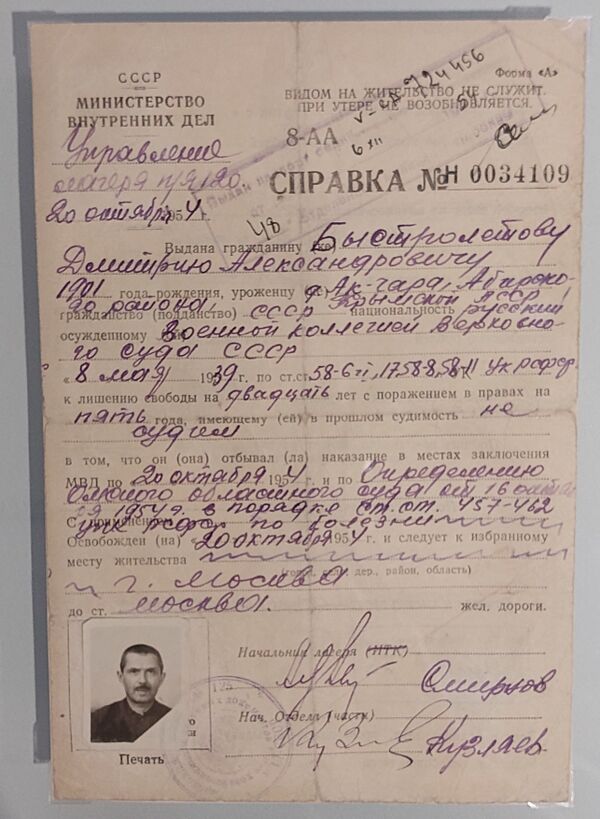 СССР
МИНИСТЕРСТВО
ВНУТРЕННИХ ДЕЛ
Форма «А»
ВИДОМ НА ЖИТЕЛЬСТВО НЕ СЛУЖИТ.
ПРИ УТЕРЕ НЕ ВОЗОБНОВЛЯЕТСЯ.
724456
Управление
лагеря п/я 120
20 октября 1954 г.
8-АА
СПРАВКА № Н 0034109
48
Выдана гражданину Быстролетову
Дмитрию Александровичу
1901 года рождения, уроженцу д. Ак-Чара, Абарско-
го района, Крымской АССР,
гражданство (подданство) СССР национальность русский
осужденному Военной коллегией Верховно-
го суда СССР
« 8 мая 1939 г. по ст.ст. 58-6 , 17, 58-8, 58-11 УК РСФСР
к лишению свободы на двадцать лет с поражением в правах на
пять года, имеющему (ей) в прошлом судимость не
судим
в том, что он (она) отбывал (ла) наказание в местах заключения
МВД по 20 октября 1954 г. и по Определению
Омского областного суда от 16 октяб-
ря 1954 г. в порядке ст.ст. 457-462
С применением
УПК РСФСР по болезни
Освобожден (на) «20 октября 1954 г. и следует к избранному
месту жительства
(гор., дер., район, область)
г. Москва
до ст. Москва. жел. дороги.
Начальник лагеря (ИТК)
Смирнов
Нач. Отдела (части)
Кузлаев
Печать